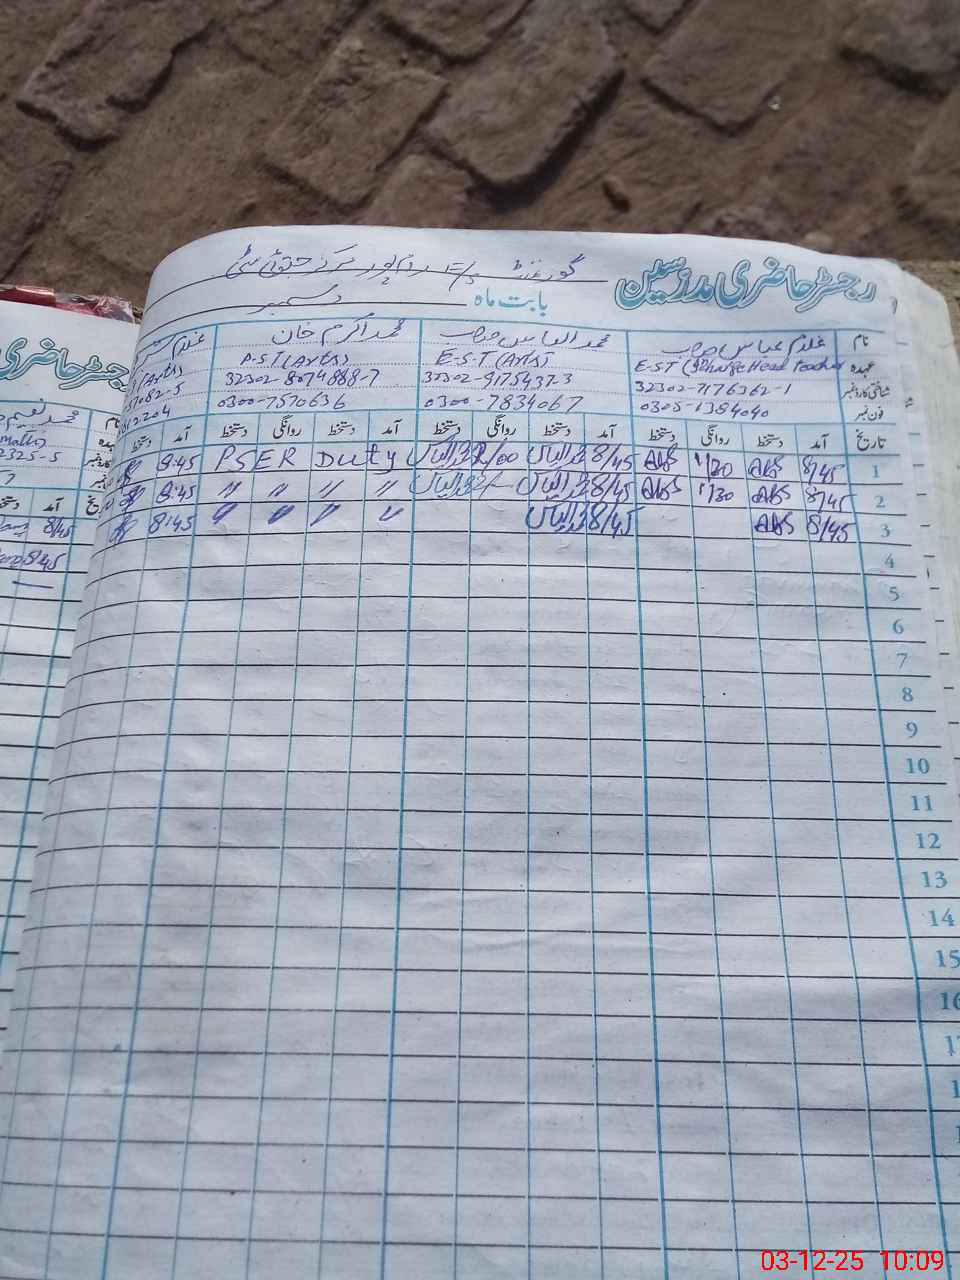 رجسٹر حاضری مدرسین
گورنمنٹ E/S رام پور مرکز جتوئی سٹی
بابت ماہ دسمبر
نام غلام عباس صاحب محمد الیاس صاحب محمد اکرم خان غلام
عہدہ E-S-T (Incharge Head Teacher E-S-T (Arts) P.S.T (Arts) (Arts)
شناختی کارڈ نمبر 32302-7176362-1 32302-9175437-3 32302-8074888-7 57082-5
فون نمبر 0305-1384040 0300-7834067 0300-7570636 12204
تاریخ آمد دستخط روانگی دستخط آمد دستخط روانگی دستخط آمد دستخط روانگی دستخط آمد دستخط
1 8/45 Abs 1/30 Abs 8/45 محمد الیاس 2/00 محمد الیاس PSER Duty 8:45
2 8/45 Abs 1/30 Abs 8/45 محمد الیاس محمد الیاس // // // // 8:45
3 8/45 Abs 8/45 محمد الیاس // // // // 8:45
4
5
6
7
8
9
10
11
12
13
14
15
16
رجسٹر حاضری
نام محمد نعیم
Math)
2325-5
7
آمد دستخط
8/45
8:45
03-12-25 10:09